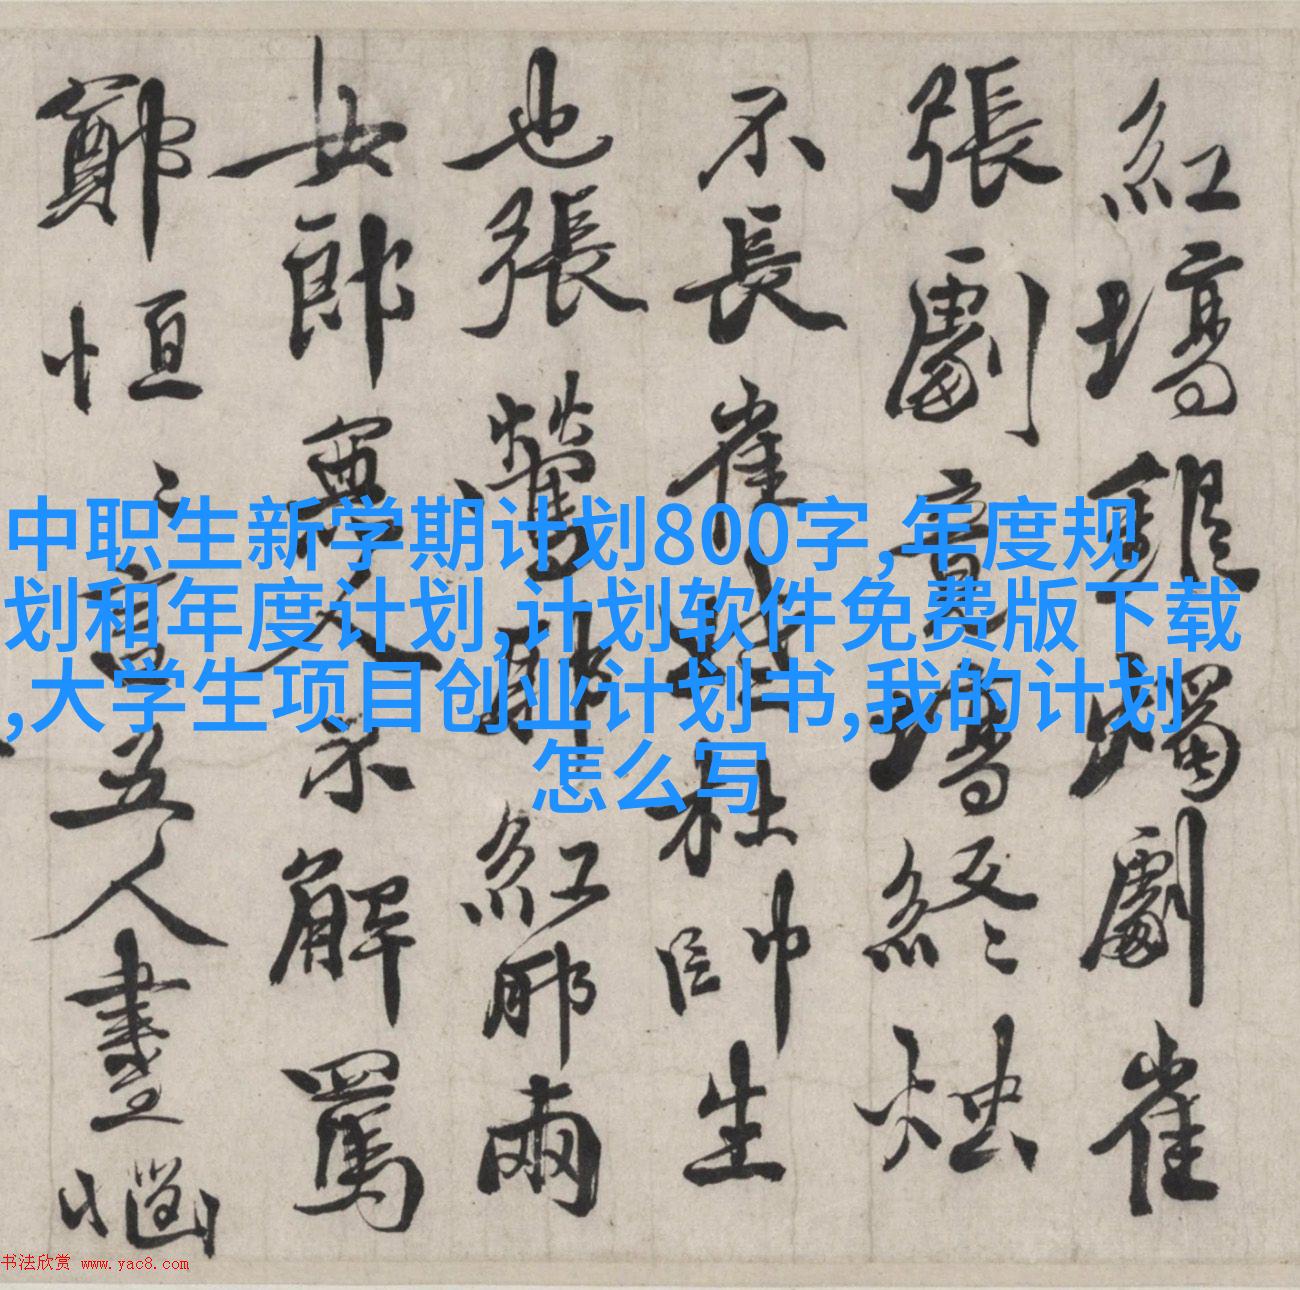 中职生新学期计划800字,年度规
划和年度计划,计划软件免费版下载
,大学生项目创业计划书,我的计划
怎么写
紅 燭劇崔
張劇意 終〻
不長崔 杜帥生
也張鶯 紅 兩
女郎 人 解罵
鄭恒〻 五人盡惱
书法欣赏 www.yac8.com